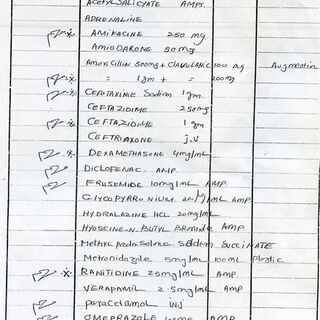 ACETYL SALICYATE AMPS.
ADRENALINE
AMIKACINE 250 mg
AMIODARONE 50mg
Amoxicillin 500mg + Clavulanic 100 mg Augmentin
= 1gm + = 200mg
CEFTAXIME Sodium 1gm.
CEFTAZIDIME 250mg
CEFTAZIDIME 1 gm
CEFTRIAXONE I.V
DEXAMETHASONE 4mg/mL
DICLOFENAC. AMP.
FRUSEMIDE 10mg/mL AMP.
GLYCOPYRONIUM AMP
HYDRALAZINE HCL 20mg/
HYOSCINE-N. BUTYL BROMIDE AMP
SUCCINATE
Metronidazole 5mg/mL 100mL Plastic
RANITIDINE 25mg/mL AMP.
VERAPAMIL 2.5mg/mL AMP
paracetamol
OMEPRAZOLE AMP